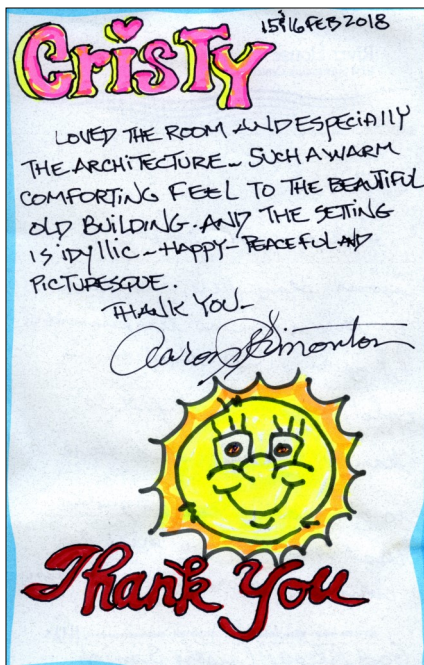 15&16 FEB 2018
CRiSTY
LOVED THE ROOM AND ESPECIALLY
THE ARCHITECTURE ~ SUCH A WARM
COMFORTING FEEL TO THE BEAUTIFUL
OLD BUILDING. AND THE SETTING
IS IDYLLIC ~ HAPPY ~ PEACEFUL AND
PICTURESQUE.
THANK YOU ~
Aaron Simonton
Thank You